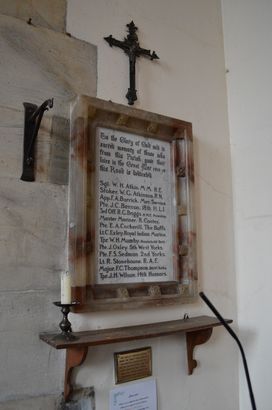 To the Glory of God and in
sacred memory of those who
from this Parish gave their
lives in the Great War 1914-19
this Road is dedicated
Sgt. W. H. Atkin. M.M. R.E.
Stoker. W. G. Atkinson. R.N.
App. F. A. Barrick. Mer. Service
Pte. J. C. Benson. 18th H.L.I
3rd Off. R. C. Boggs.
Master Mariner. R. Conter.
Pte. E. A. Cockerill. The Buffs
Lt. C. Exley. Royal Indian Marine
Tpr. W. H. Mamby.
Pte. J. Oxley. 5th West Yorks.
Pte. F. S. Sedman 2nd Yorks.
Lt. R. Stonehouse. R.A.F.
Major. F. C. Thompson.
Tpr. J. H. Wilson. 19th Hussars